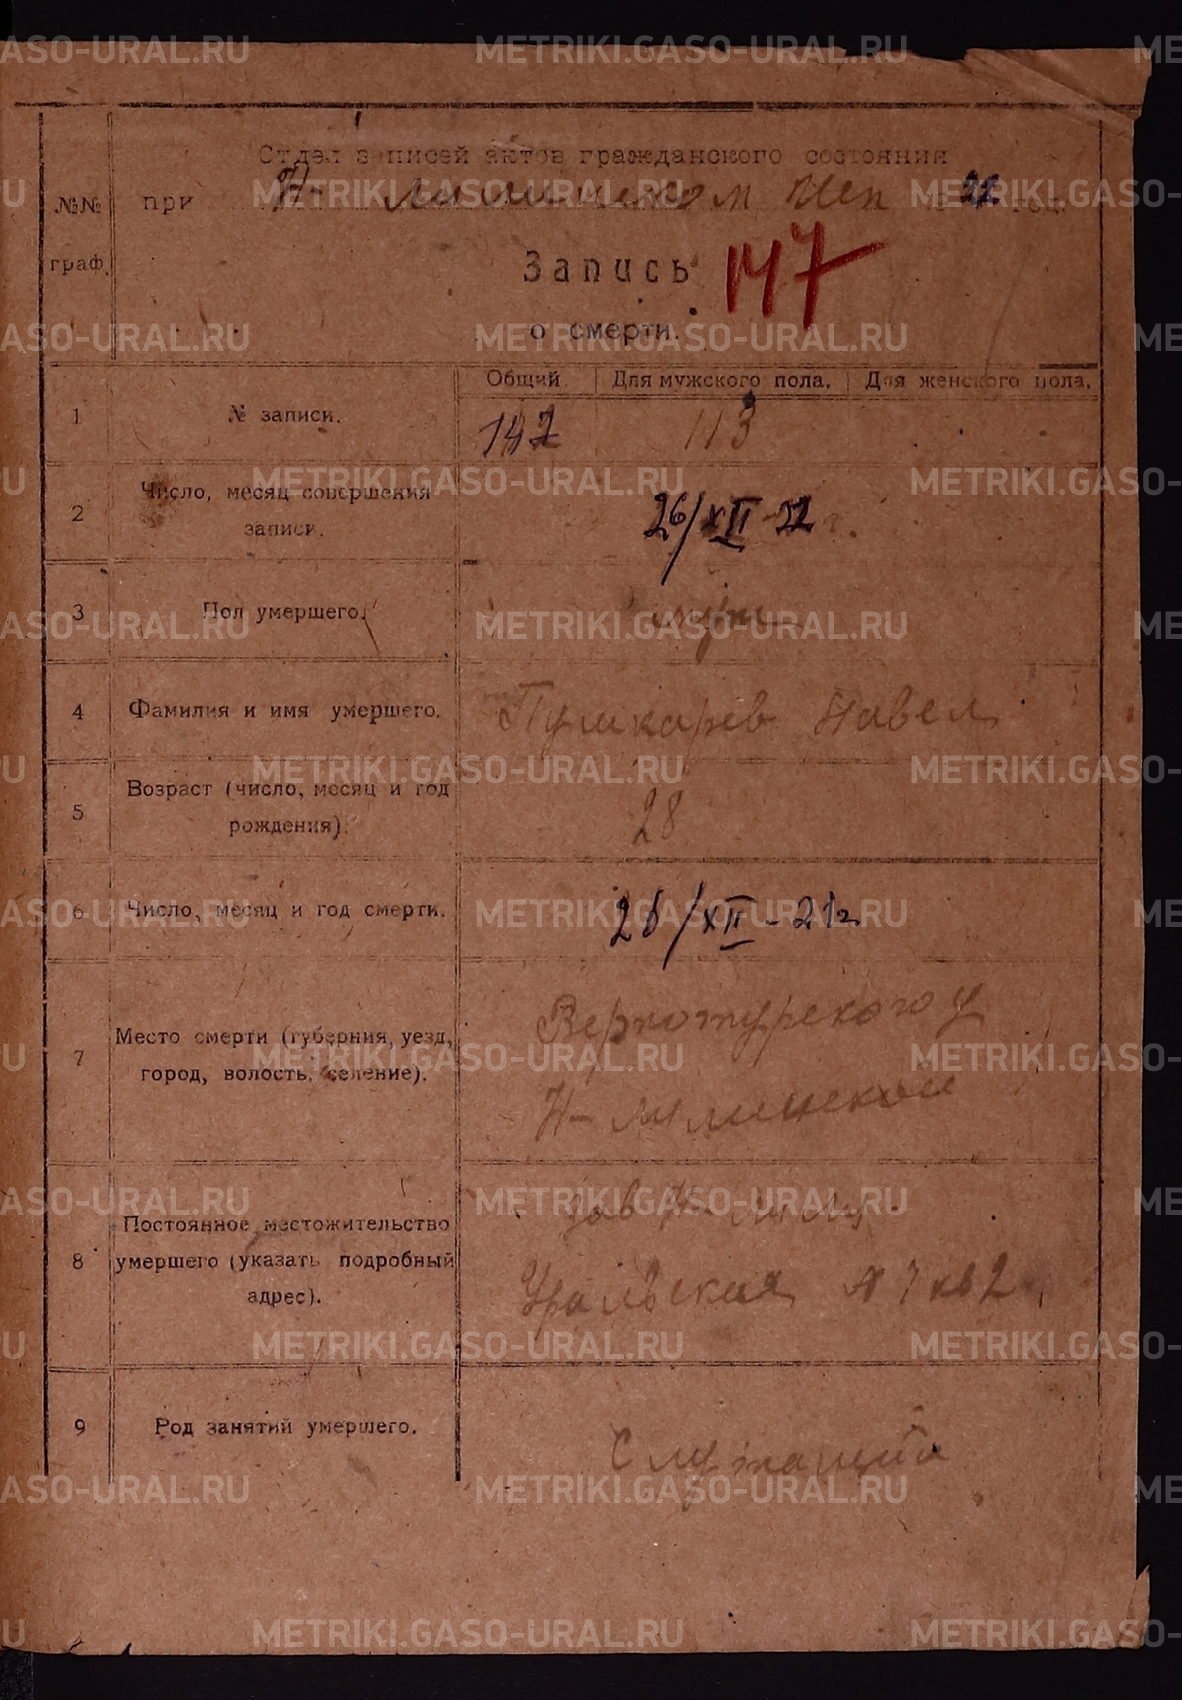 Отдел записей актов гражданского состояния
№№ граф.
при Н- лялинском Исп 21 год.
Запись 147
о смерти.
Общий. Для мужского пола. Для женского пола.
1 № записи. 147 113
2 Число, месяц совершения
записи. 26/XII-21 г.
3 Пол умершего. муж
4 Фамилия и имя умершего. Пушкарев Павел
5 Возраст (число, месяц и год
рождения). 28
6 Число, месяц и год смерти. 26/XII-21г
7 Место смерти (губерния, уезд,
город, волость, селение).
Верхотурского у
Н- лялинской
8 Постоянное местожительство
умершего (указать подробный
адрес).
зав Н- Ляля
Уральская № 7 кв 2
9 Род занятий умершего. Служащий
METRIKI.GASO-URAL.RU